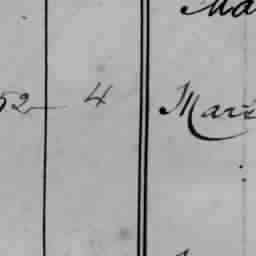 Ma
52 4 Mari